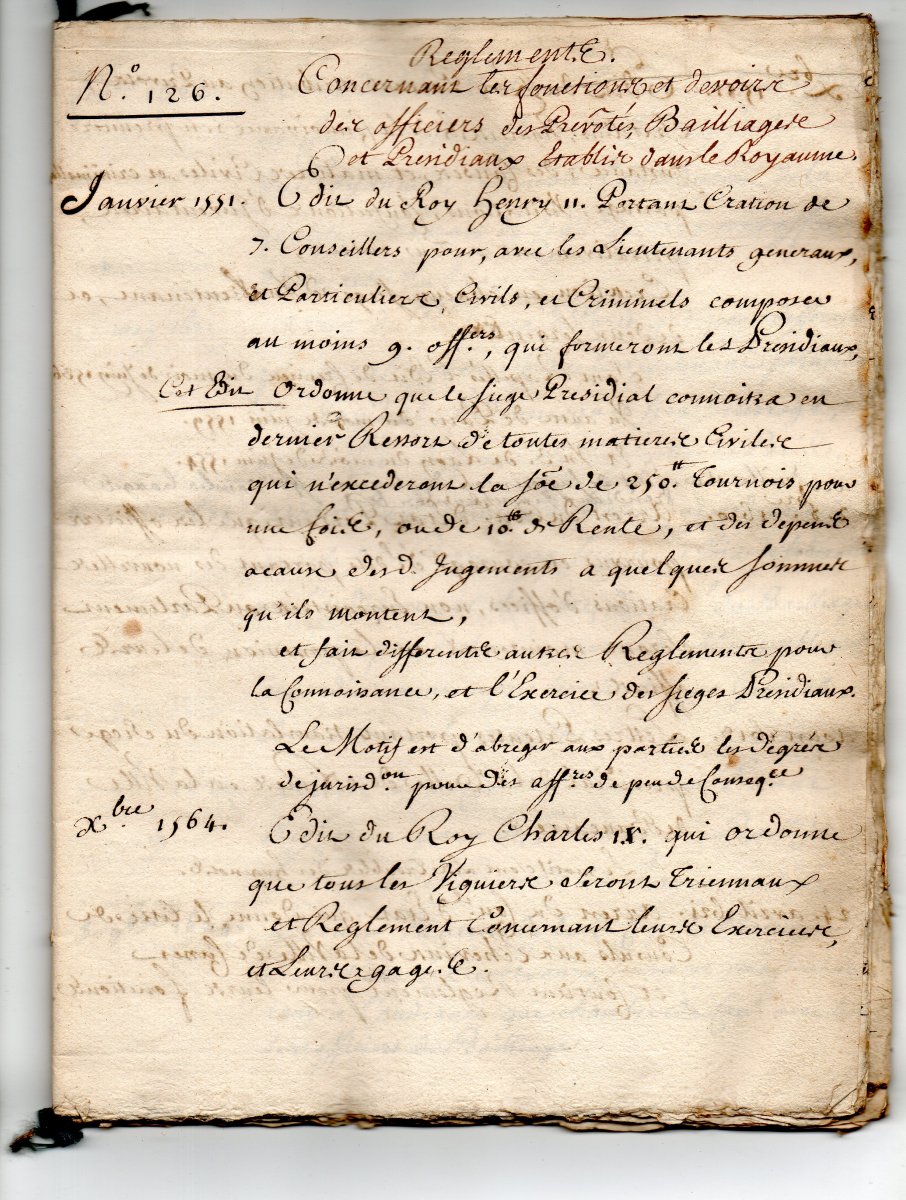 Reglements.
N.° 126.
Concernant les fonctions et devoirs
des officiers des Prevotés, Bailliages
et Presidiaux Etablis dans le Royaume
Janvier 1551. Edit du Roy henry 11. Portant Cration de
7. Conseillers pour, avec les Lieutenants generaux,
et Particuliers, Civils, et Criminels composer
au moins 9. off.ers, qui formeront les Presidiaux,
Cet Edit Ordonne que le siege Presidial connoitra en
dernier Ressort de toutes matieres Civiles
qui n'excederont la soe de 250.tt Tournois pour
une fois, ou de 10.tt de Rente, et des depens
desd. Jugements a quelques sommes
qu'ils montent,
et fait differents autres Reglements pour
la Connoisance, et l'Exercice des sieges Presidiaux.
Le Motif est d'abreger aux parties les degrés
de jurisd.on pour des aff.res de peu de Conseq.ce
Xbre 1564. Edit du Roy Charles IX. qui ordonne
que tous les Viguiers seront Triennaux
et Reglement Concernant leurs Exercices,
et Leurs gages.